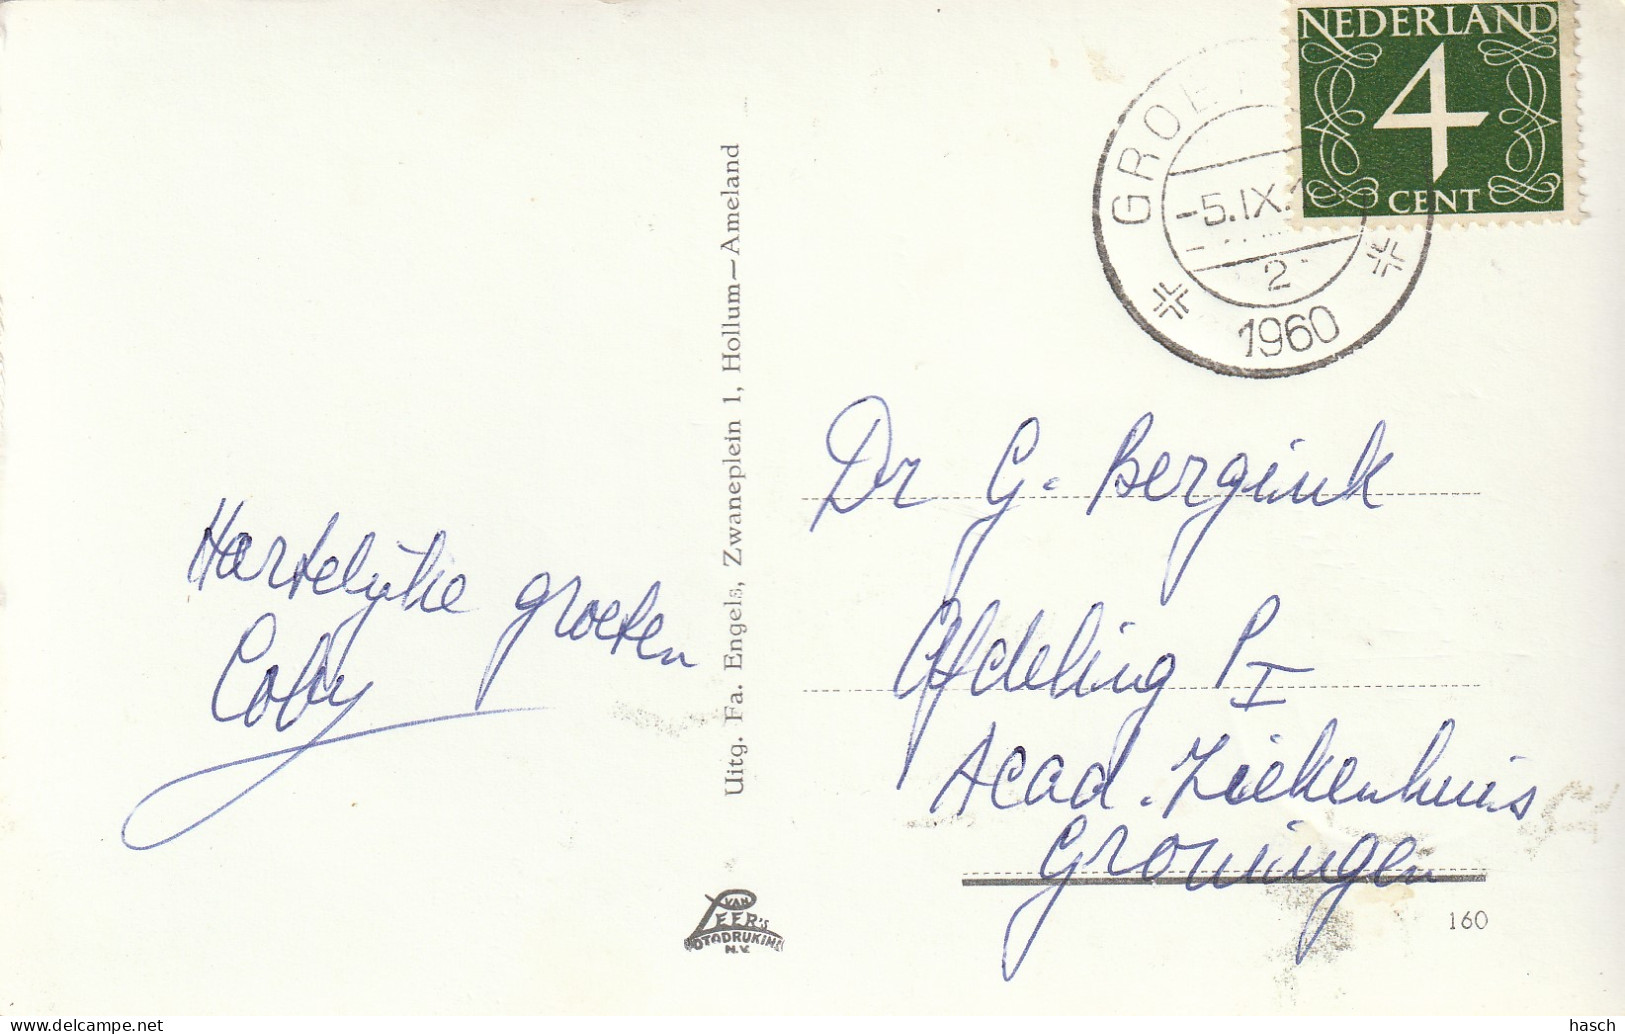 NEDERLAND
4
CENT
GROE
-5.IX.1
2
1960
Hartelijke groeten
Coby
Uitg. Fa. Engels, Zwaneplein 1, Hollum—Ameland
Dr G. Bergink
Afdeling P I
Acad. Ziekenhuis
Groningen
VAN
LEER's
FOTODRUKIND.
N.V.
160
hasch